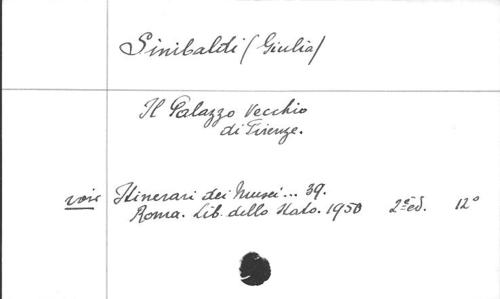 Sinibaldi (Giulia)
Il Palazzo Vecchio
di Firenze.
voir Itinerari dei Musei... 39.
Roma. Lib. dello Stato. 1950 2e éd. 12°